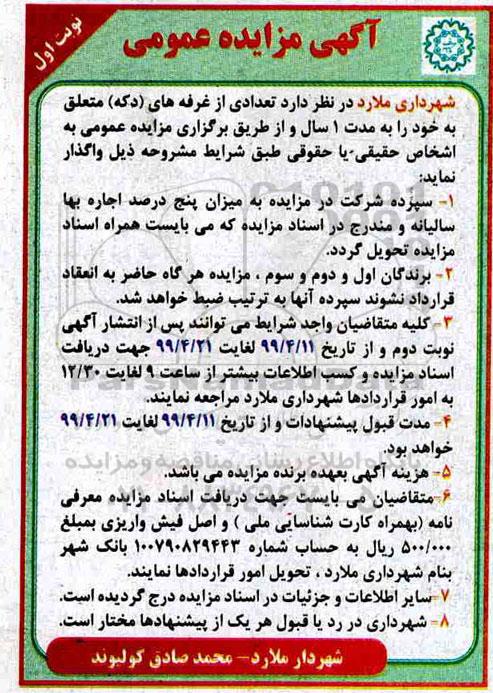 نوبت اول
آگهی مزایده عمومی
شهرداری ملارد در نظر دارد تعدادی از غرفه های (دکه) متعلق
به خود را به مدت ۱ سال و از طریق برگزاری مزایده عمومی به
اشخاص حقیقی یا حقوقی طبق شرایط مشروحه ذیل واگذار
نماید:
۱- سپرده شرکت در مزایده به میزان پنج درصد اجاره بها
سالیانه و مندرج در اسناد مزایده که می بایست همراه اسناد
مزایده تحویل گردد.
۲- برندگان اول و دوم و سوم ، مزایده هر گاه حاضر به انعقاد
قرارداد نشوند سپرده آنها به ترتیب ضبط خواهد شد.
۳- کلیه متقاضیان واجد شرایط می توانند پس از انتشار آگهی
نوبت دوم و از تاریخ ۹۹/۴/۱۱ لغایت ۹۹/۴/۲۱ جهت دریافت
اسناد مزایده و کسب اطلاعات بیشتر از ساعت ۹ لغایت ۱۲/۳۰
به امور قراردادها شهرداری ملارد مراجعه نمایند.
۴- مدت قبول پیشنهادات و از تاریخ ۹۹/۴/۱۱ لغایت ۹۹/۴/۲۱
خواهد بود.
۵- هزینه آگهی بعهده برنده مزایده می باشد.
۶- متقاضیان می بایست جهت دریافت اسناد مزایده معرفی
نامه (بهمراه کارت شناسایی ملی ) و اصل فیش واریزی بمبلغ
۵۰۰/۰۰۰ ریال به حساب شماره ۱۰۰۷۹۰۸۲۹۴۴۳ بانک شهر
بنام شهرداری ملارد ، تحویل امور قراردادها نمایند.
۷- سایر اطلاعات و جزئیات در اسناد مزایده درج گردیده است.
۸- شهرداری در رد یا قبول هر یک از پیشنهادها مختار است.
شهردار ملارد - محمد صادق کولیوند